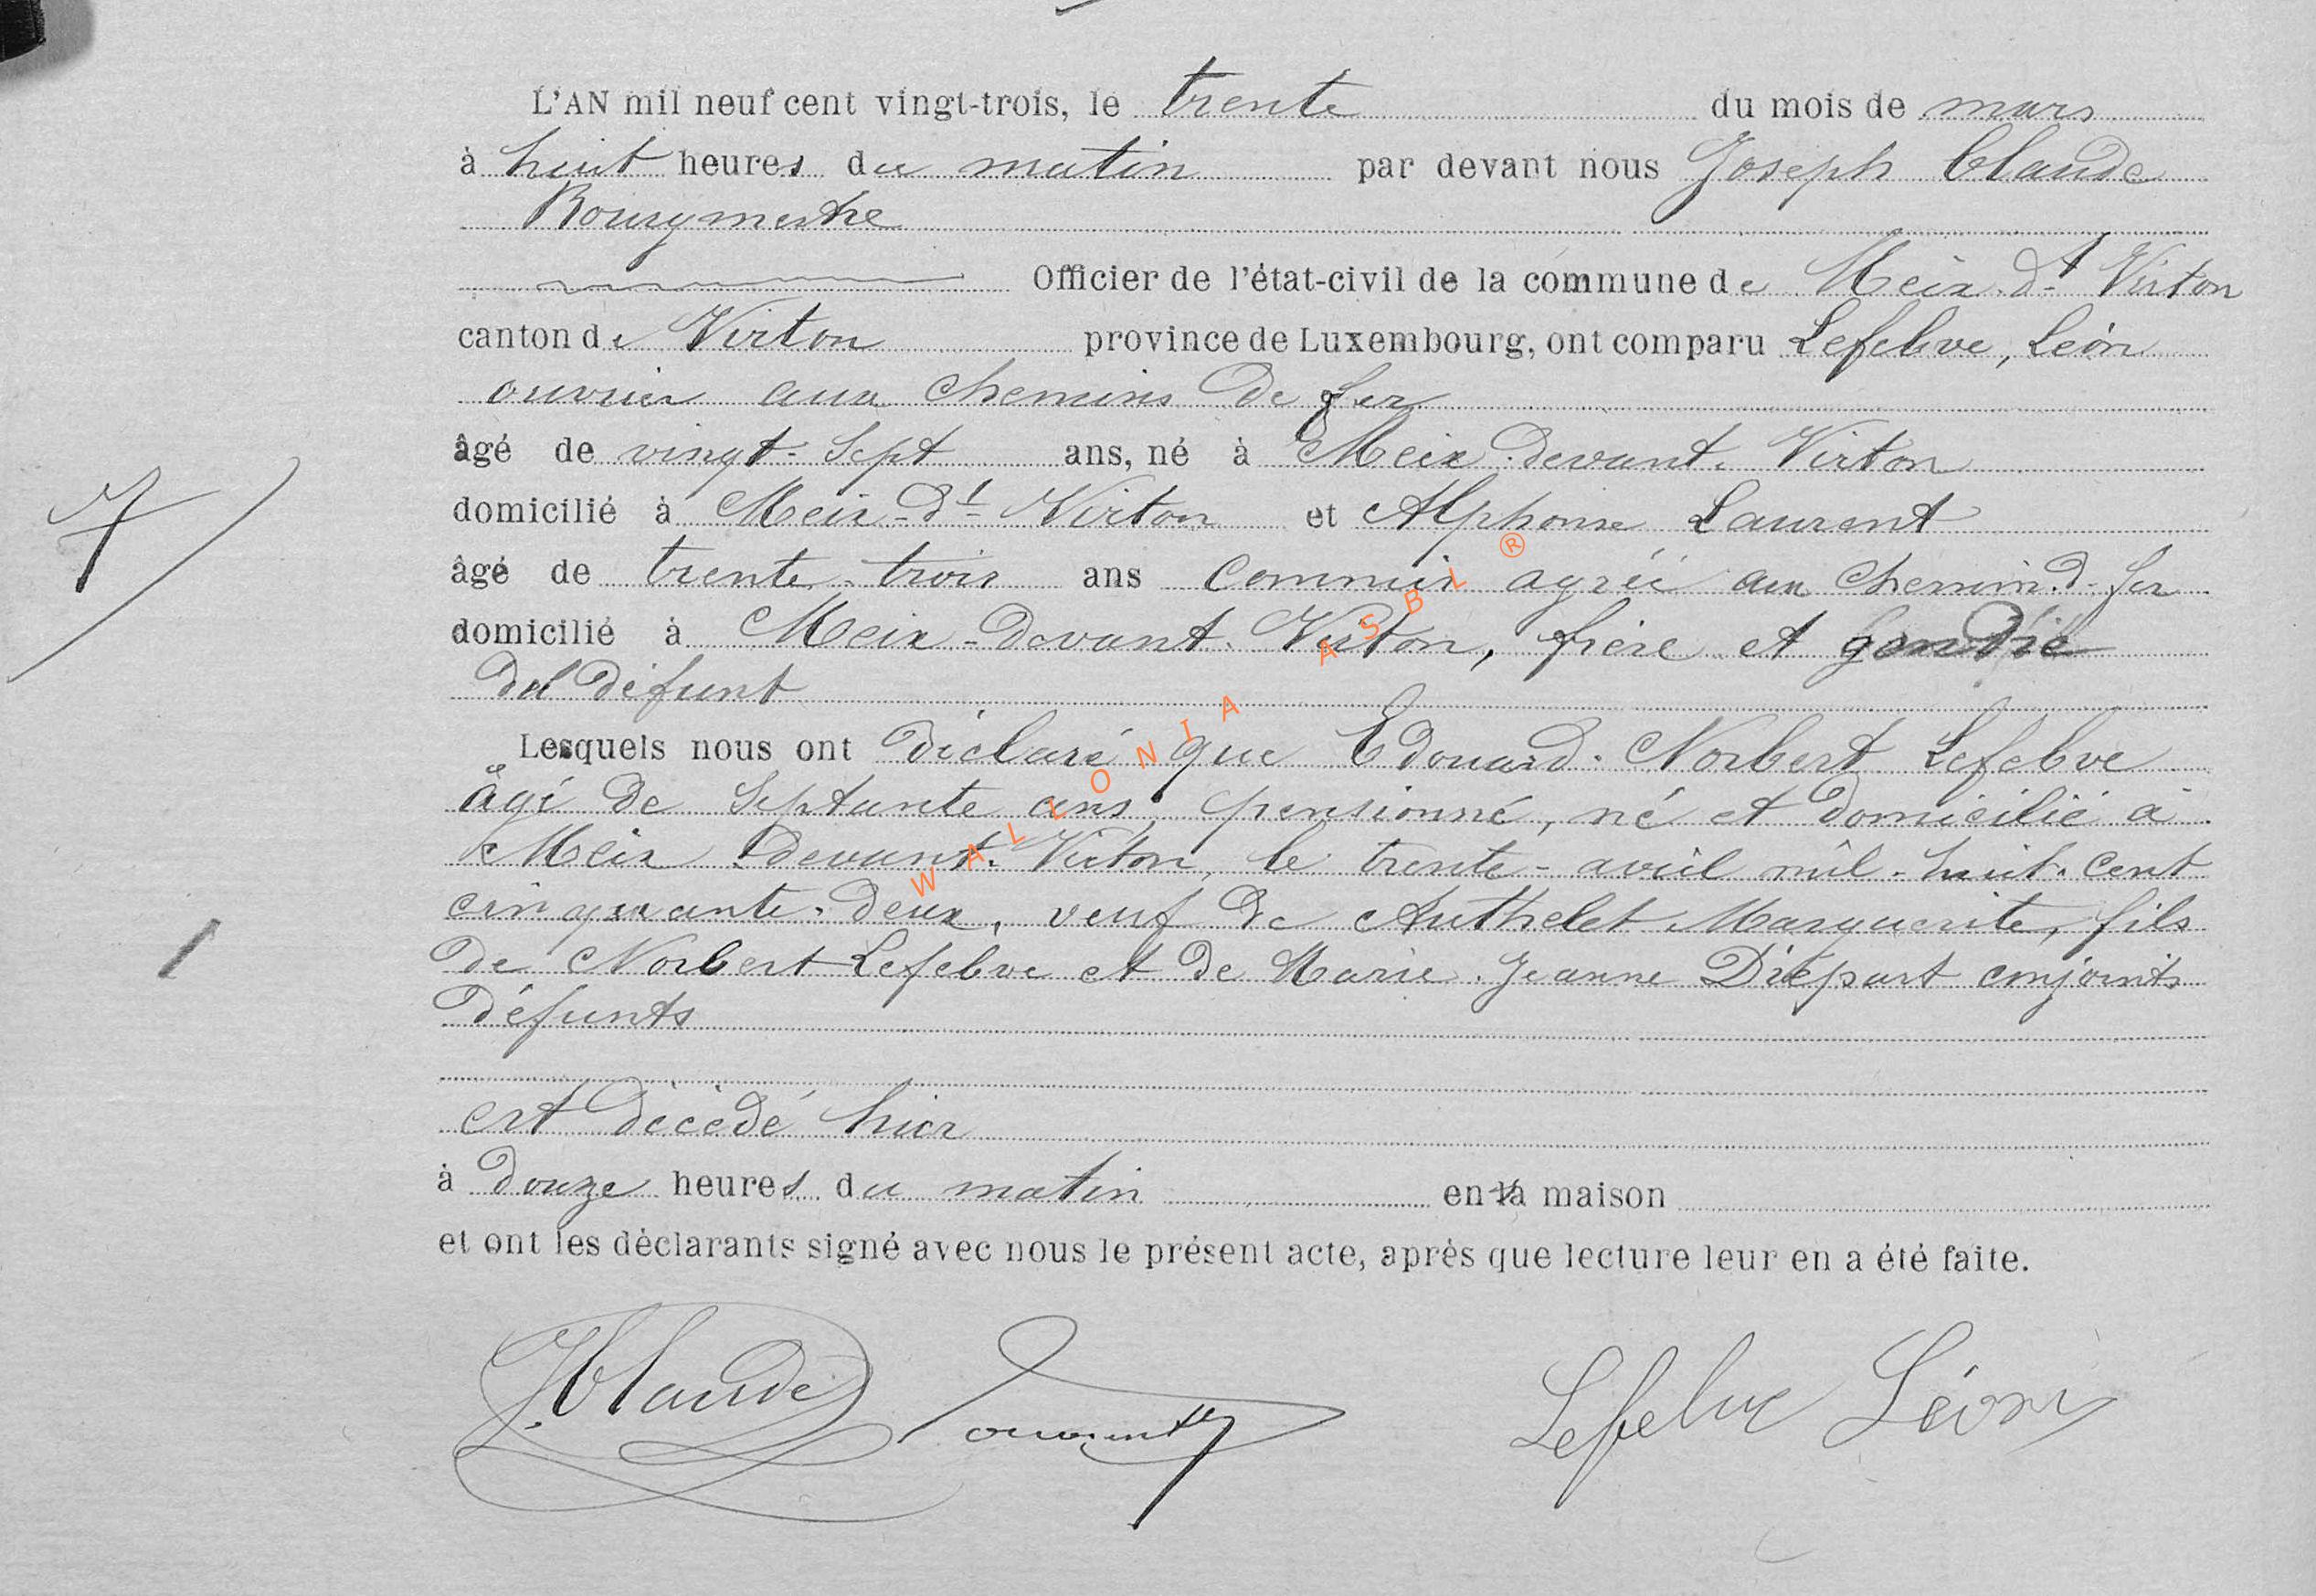 L'AN mil neuf cent vingt-trois, le trente du mois de mars
à huit heures du matin par devant nous Joseph Claude
Bourgmestre
Officier de l'état-civil de la commune de Meix-dt Virton
canton de Virton province de Luxembourg, ont comparu Lefebve, Léon
ouvrier aux chemins de fer
âgé de vingt-sept ans, né à Meix-devant-Virton
domicilié à Meix-dt Virton et Alphonse Laurent
âgé de trente-trois ans commis agréé aux chemin d. fer
domicilié à Meix-devant-Virton, frère et gendre
du défunt
Lesquels nous ont déclaré que Edouard-Norbert Lefebve
âgé de septante ans, pensionné, né et domicilié à
Meix devant-Virton, le trente-avril mil-huit-cent
cinquante-deux, veuf de Authelet Marguerite, fils
de Norbert Lefebve et de Marie-Jeanne conjoints
défunts
est décédé hier
à douze heures du matin en sa maison
et ont les déclarants signé avec nous le présent acte, après que lecture leur en a été faite.
J. Claude Laurent Lefebve Léon
7
WALLONIA ASBL ®